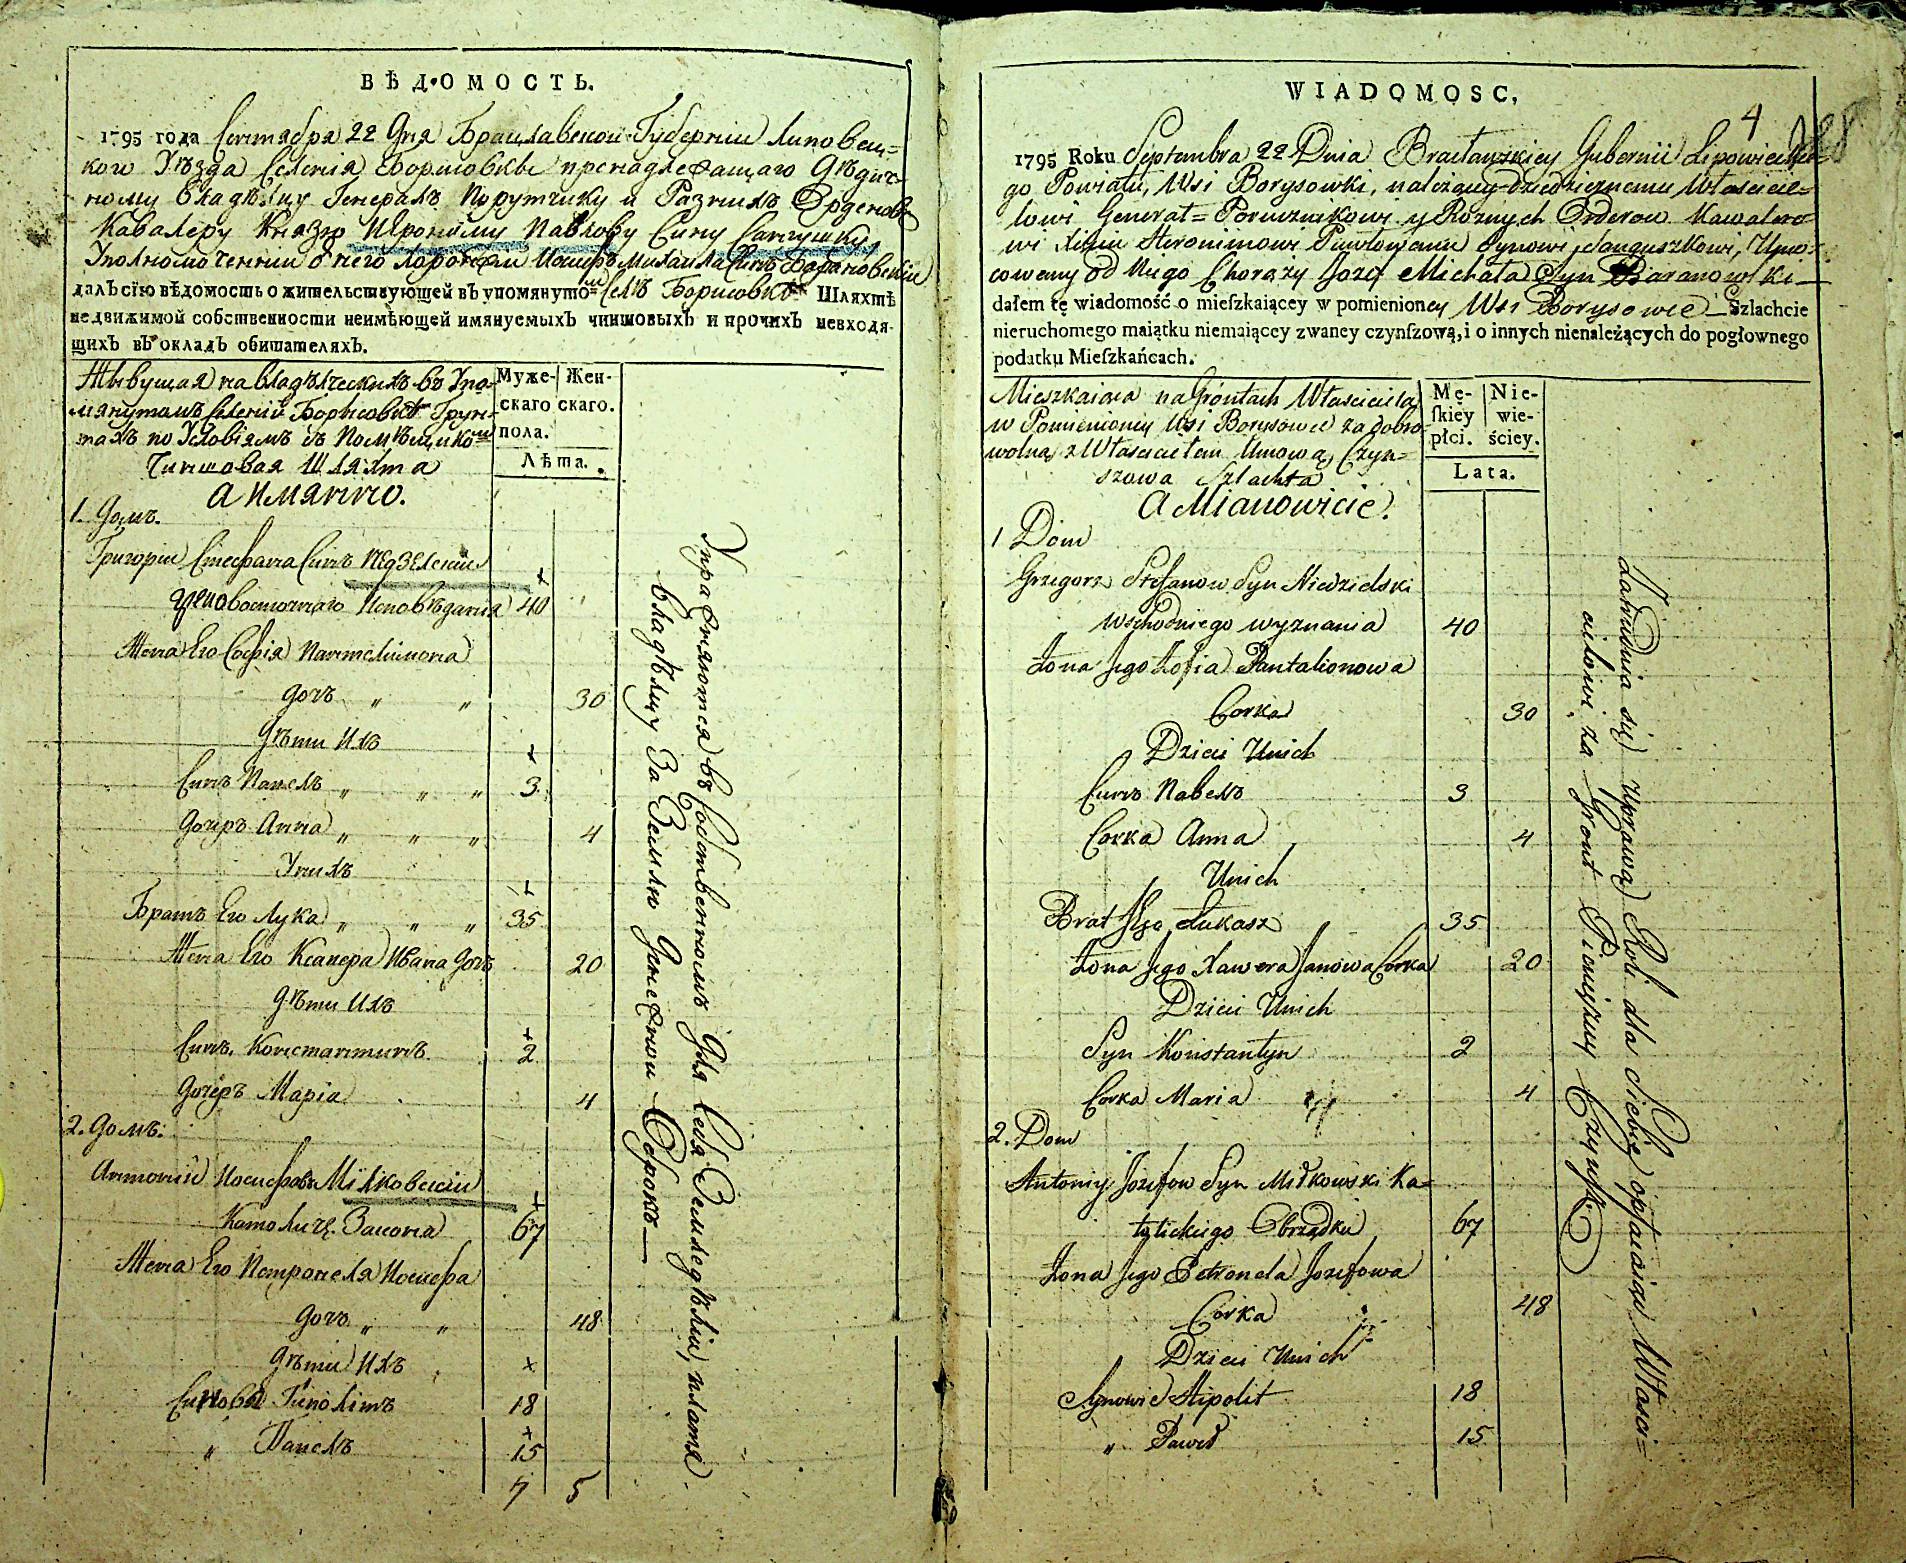 ВѢДОМОСТЬ.
1795 года Сентября 22 Дня Брацлавской Губернии Липовец=
кого Уѣзда Селения Борисовки принадлежащаго Дѣдич=
ному Владѣлцу Генералъ Порутчику и Разнихъ Орденовъ
Кавалеру Князю Иерониму Павлову Сину Сангушку
Уполномоченний Хоронжий Иосифъ Михаила Синъ Барановский
далъ сїю вѣдомость о жительствующей въ упомянутомъ Селѣ Борисовкѣ Шляхтѣ
недвижимой собственности неимѣющей имянуемыхъ чиншовыхъ и прочихъ невходя-
щихъ въ окладъ обишателяхъ.
Живущая на владѣлческихъ въ Упо-
мянутомъ Селении Борисовкѣ Грун-
тахъ по Условіямъ съ Помѣщикомъ
Чиншовая Шляхта
а имянно.
Муже- Жен-
скаго скаго.
пола.
Лѣта.
1. Домъ.
Григорий Стефана Синъ Недзелский
восточнаго Исповѣдания 40
Жена Его Софія Пантелимона
дочь „ „ 30
Дѣти Ихъ
Синъ Павелъ „ „ „ 3
Дочеръ Анна „ „ „ 4
Унихъ
Братъ Его Лука „ „ „ 35
Жена Его Ксавера Ивана Дочъ 20
Дѣти Ихъ
Синъ Константинъ 2
Дочеръ Марія 4
2. Домъ.
Антоний Иосифовъ Мілковский
Католич: Закона 67
Жена Его Петронеля Иосифа
Дочъ „ „ 48
Дѣти Ихъ
Синовья Гиполітъ 18
„ Павелъ 15
7 5
Упражняются въ Собственномъ Для Себя Земледѣліи, платя
владѣлцу За Землю Денежной Оброкъ —
4
WIADOMOSC,
1795 Roku Septembra 22 Dnia Bracławskiey Gubernii Lipowieckie=
go Powiatu, Wsi Borysowki, należącey dziedzicznemu Właścicie=
lowi Generał = Porucznikowi y Roznych Orderow Kawalero=
wi Xięciu Hieronimowi Pawłowemu Synowi Sanguszkowi, Upeł=
cowany od Niego Chorąży Jozef Michała Syn Baranowski —
dałem tę wiadomość o mieſzkaiącey w pomienioney Wsi Borysowce — Szlachcie
nieruchomego maiątku niemaiącey zwaney czynſzową, i o innych nienaleźących do pogłownego
podatku Mieſzkańcach.
Mieszkaiąca na Grontach Właściciela
w Pomienioney Wsi Borysowce za dobro=
wolną z Właścicielem Umową, Czyn=
szowa Szlachta
A Mianowicie.
Mę- Nie-
ſkiey wie-
płci. ściey.
Lata.
1 Dom
Grzegorz Stefanow Syn Niedzielski
Wschodniego wyznania 40
Żona Jego Zofia Pantalionowa
Corka 30
Dzieci Unich
Синъ Павелъ 3
Corka Anna 4
Unich
Brat Jego Łukasz 35
Żona Jego Xawera Janowa Corka 20
Dzieci Unich
Syn Konstantyn 2
Corka Maria 4
2. Dom
Antoniy Jozefow Syn Miłkowski Ka=
tolickiego Obrządku 67
Żona Jego Petronela Jozefowa
Corka 48
Dzieci Unich
Synowie Hipolit 18
„ Paweł 15
Zatrudnia się Uprawą Roli dla Siebie opłaiaiąc Właści=
cielowi za Gront Pieniężny Czynsz.